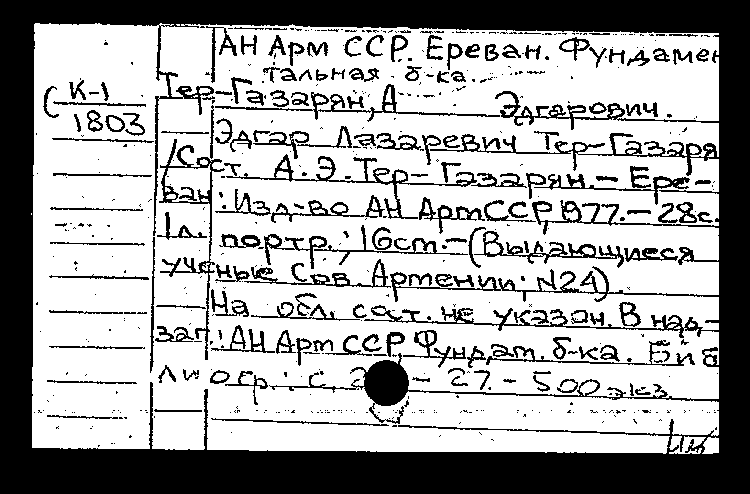 АН Арм ССР. Ереван. Фундамен
тальная б-ка.
Тер-Газарян, А Эдгарович.
К-1
1803
Эдгар Лазаревич Тер-Газаря
/Сост. А.Э.Тер-Газарян.- Ере-
ван: Изд-во АН АрмССР, 1977.- 28с.
1л. портр.; 16см.-(Выдающиеся
ученые Сов. Армении; N24).
На обл. сост. не указан. В над-
заг.: АН Арм ССР, Фундам. б-ка. Биб
лиогр.: с. 2 - 27. - 500 экз.